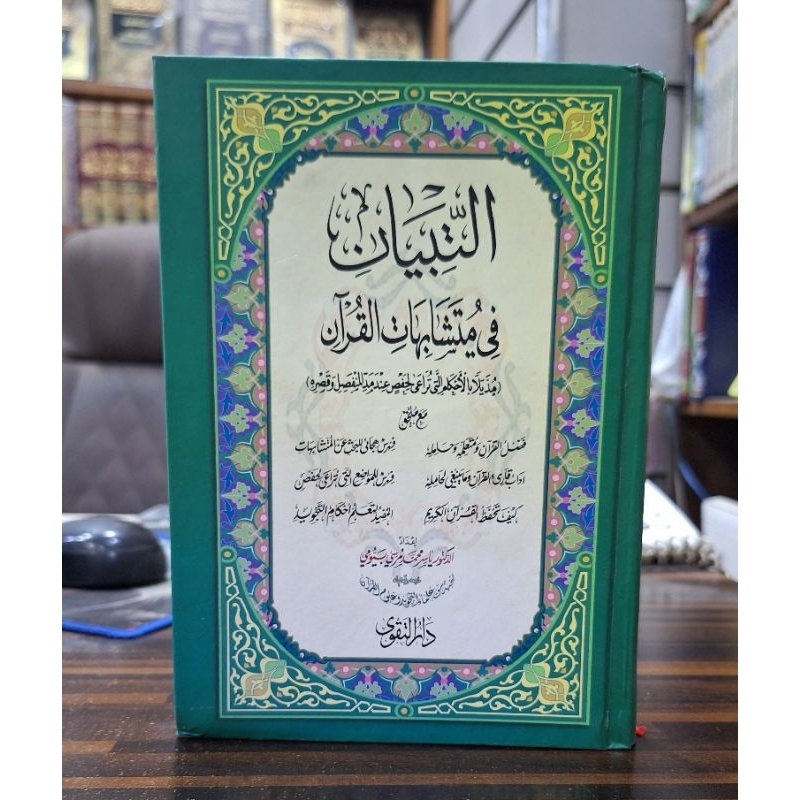 التِّبيَان
في مُتَشَابِهَاتِ القُرآن
(مُذَيَّلًا بِالأحكامِ التَّي تُراعَى لِحَفْصٍ عِنْدَ مَدِّ المُنفَصِلِ وَقَصْرِهِ)
مَع مُلْحَق
فَضلُ القُرآنِ وَمُتَعَلِّمِهِ وَحَامِلِهِ فهرس هجائي للبحث عن المتشابهات
آداب قارئ القرآن وما ينبغي لحامله فهرس للمواضع التي تراعى لحفص
كَيْفَ تَحْفَظُ القُرآنَ الكَرِيم المفيد لتعلم أحكام التجويد
إعداد
الدكتور ياسر محمد مرسي بيومي
علماء التجويد وعلوم القرآن
دَارُ التَّقوَى